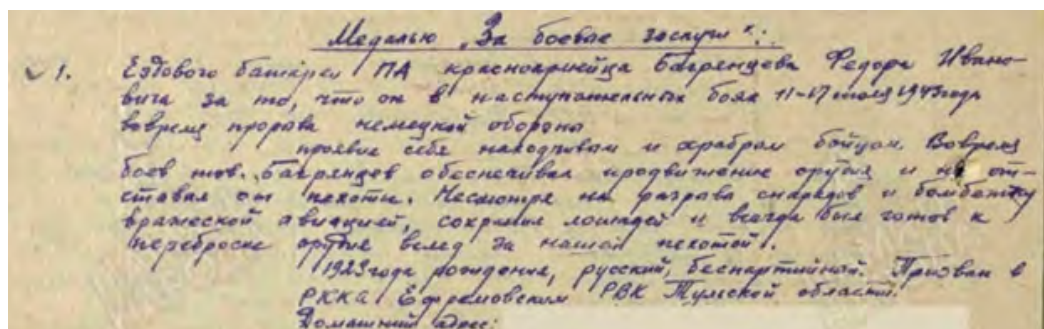 Медалью „За боевые заслуги":
1. Ездового батареи ПА красноармейца Багренцева Федора Ивано-
вича за то, что он в наступательных боях 11-17 июля 1943 года
вовремя прорыва немецкой обороны
проявил себя находчивым и храбрым бойцом. Вовремя
боев тов. Багренцев обеспечивал продвижение орудия и не от-
ставал от пехоты. Несмотря на разрывы снарядов и бомбежку
вражеской авиацией, сохранил лошадей и всегда был готов к
переброске орудия вслед за нашей пехотой.
1923 года рождения, русский, беспартийный. Призван в
РККА Ефремовским РВК Тульской области.
Домашний адрес: